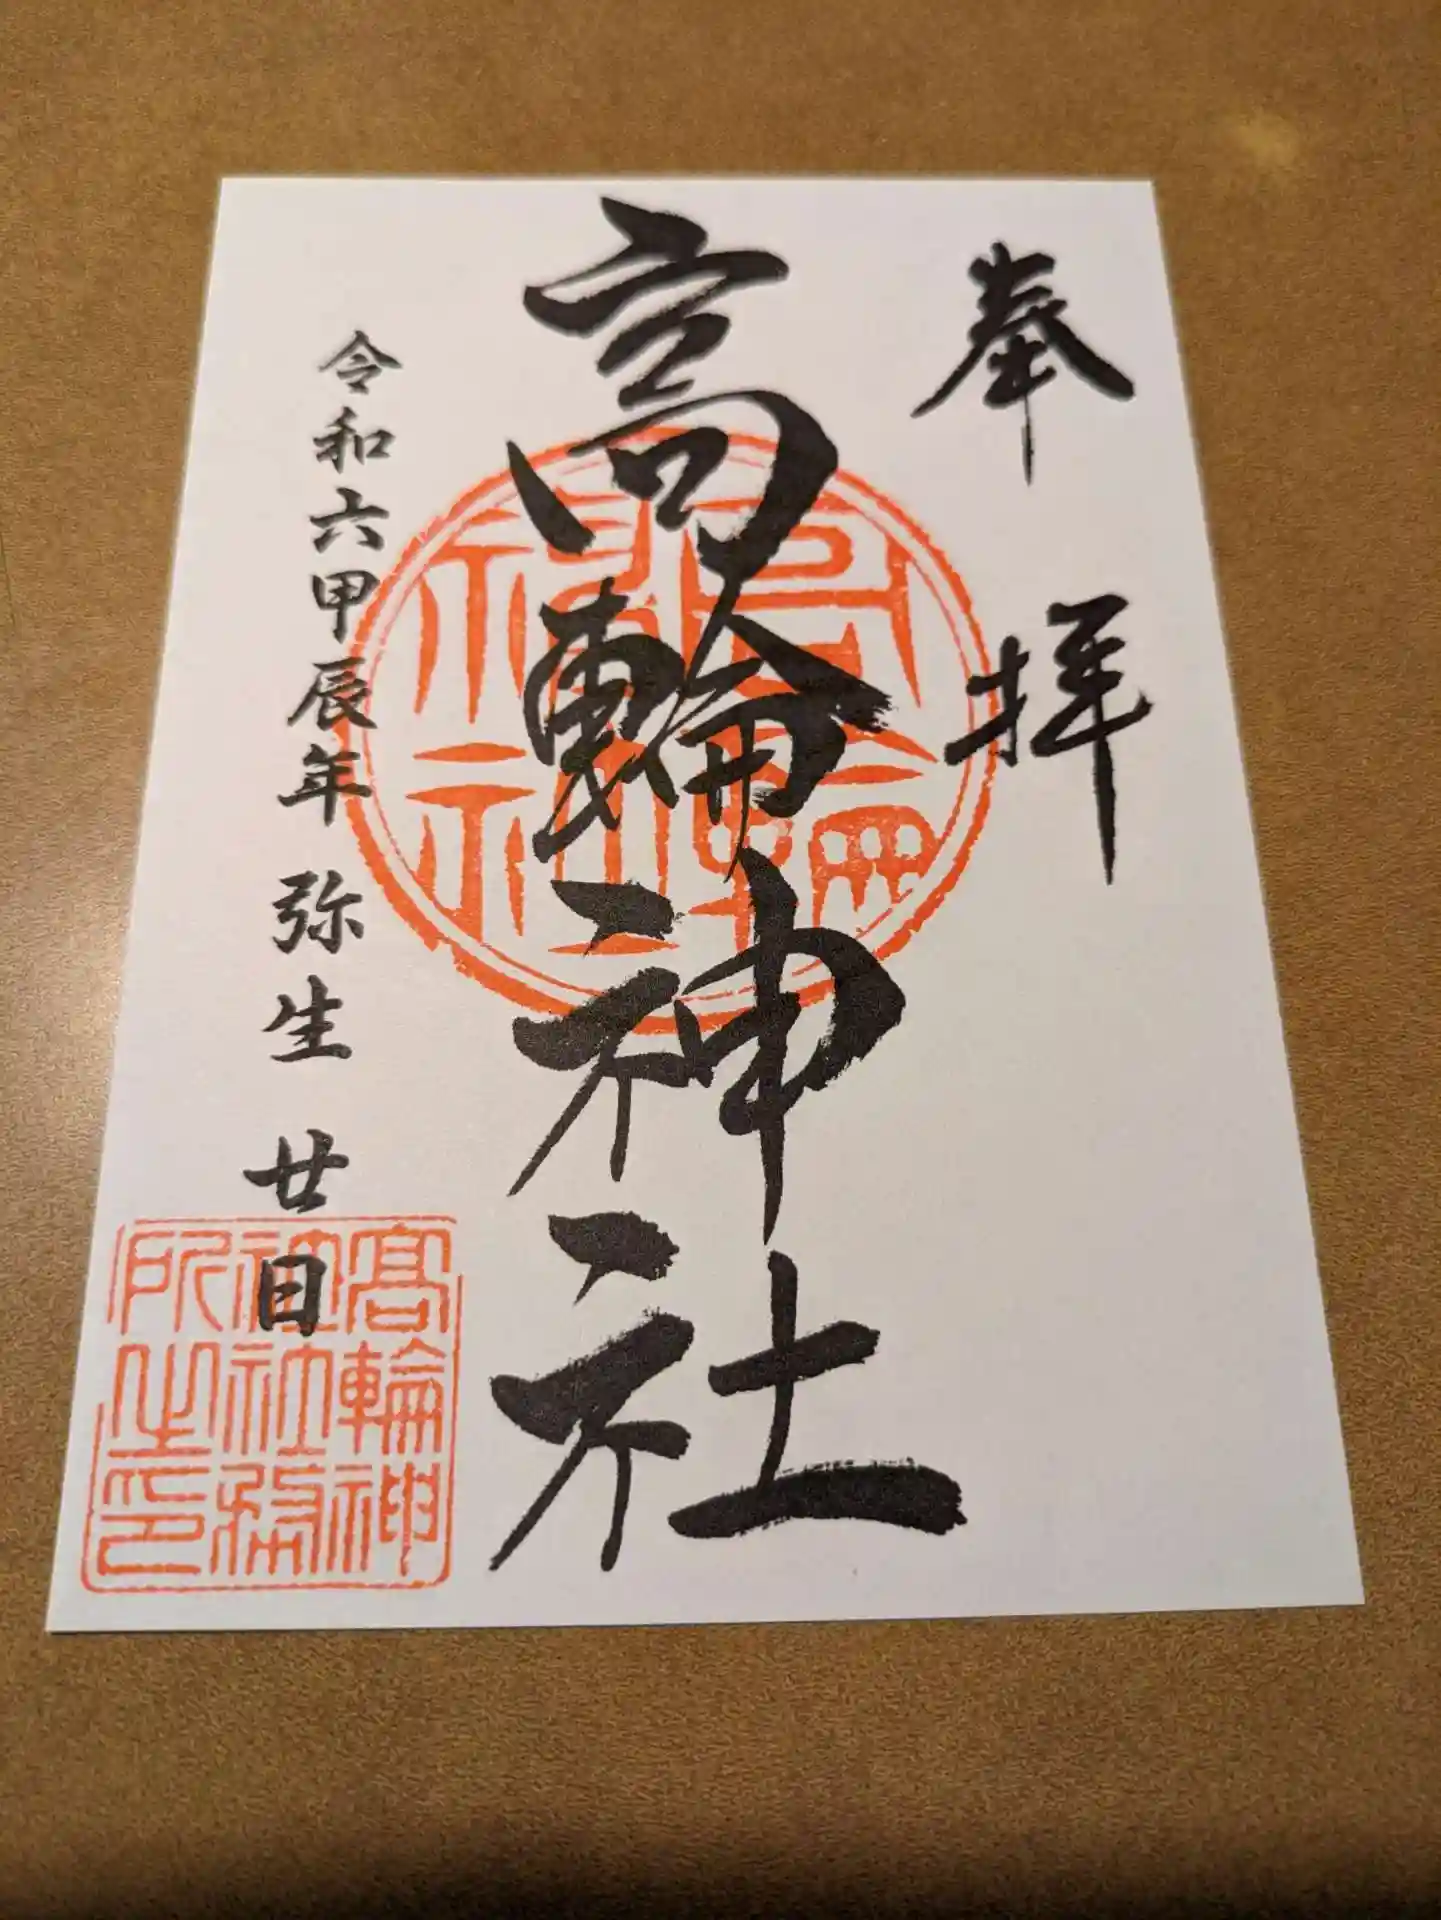 奉拝
高輪神社
令和六甲辰年 弥生 廿日
高輪神社
高輪神
社社務
所之印